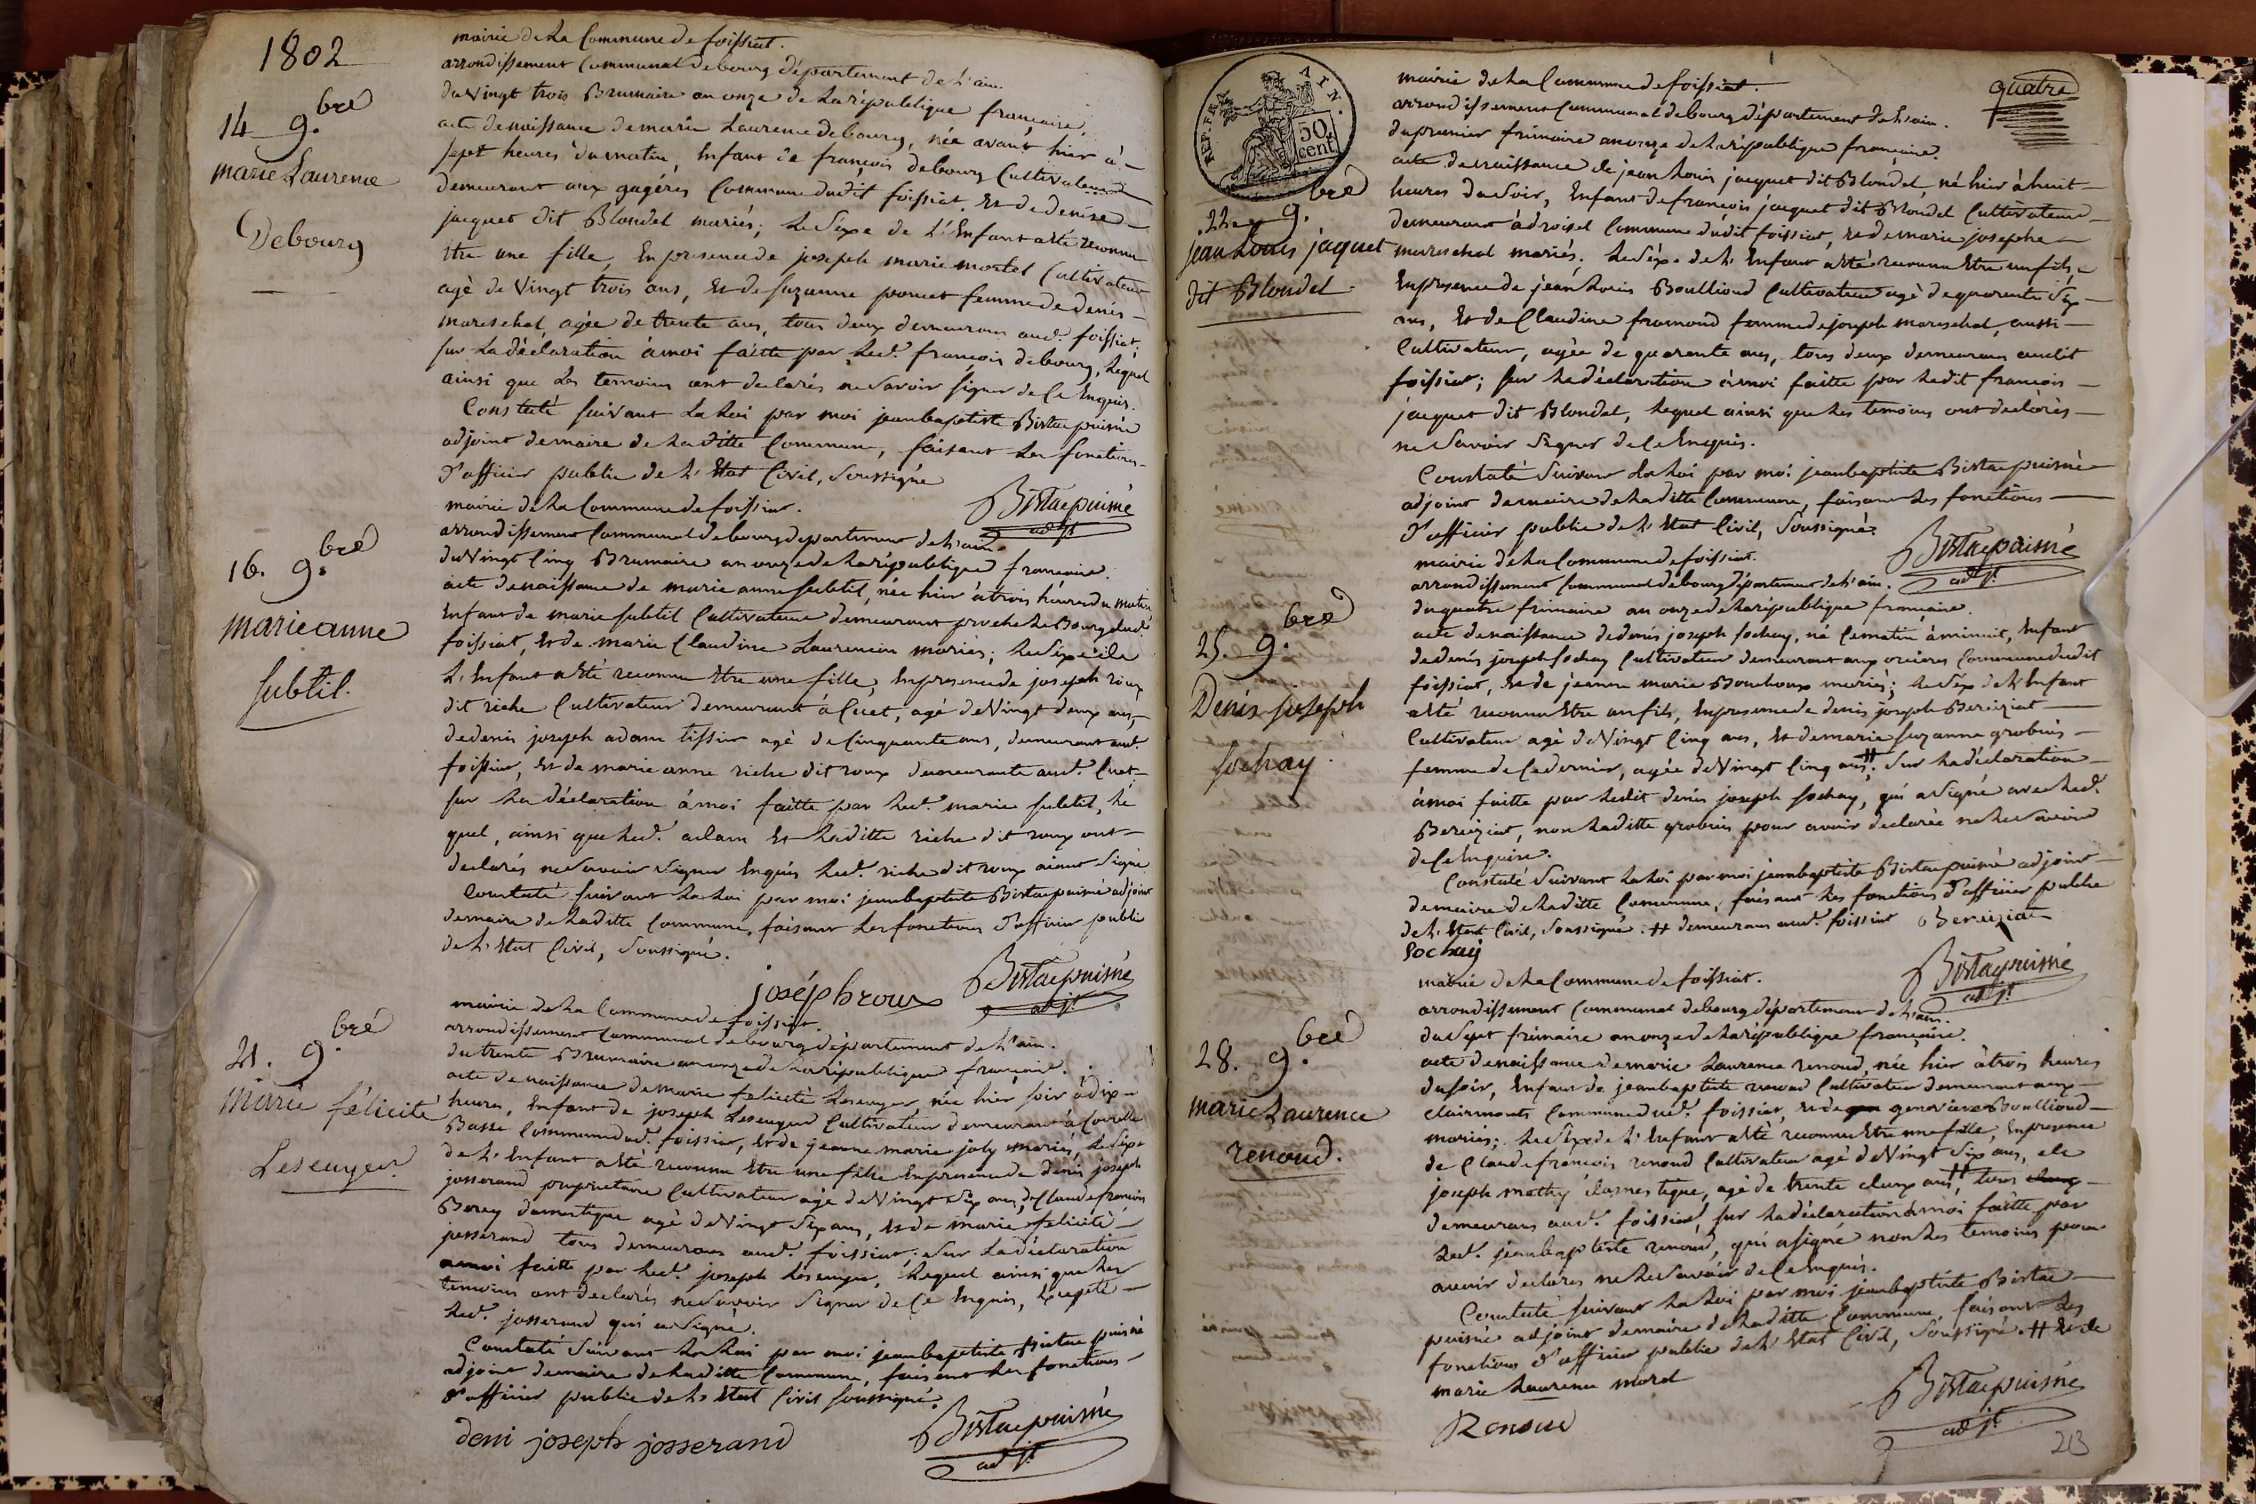 1802
14 9.bre
marie Laurence
Debourg
mairie de la Commune de foissiat.
arrondissement Communal de bourg département de l'ain.
du Vingt trois Brumaire an onze de la république française.
acte de naissance de marie Laurence debourg, née avant hier à
sept heures du matin, Enfant de françois debourg Cultivateur
demeurant aux gagères Commune dudit foissiat, Et de denise
jacquet dit Blondel mariés; Le Sexe de L'Enfant a été reconnu
Etre une fille, En presence de joseph marie mortel Cultivateur
agé de Vingt trois ans, Et de Suzanne poncet femme de denis
mareschal, agée de trente ans, tous deux demeurans aud.t foissiat;
sur La déclaration à moi faitte par Led.t françois debourg, Lequel
ainsi que Les temoins ont declarés ne Savoir Signer de Ce Enquis.
Constaté suivant La Loi par moi jeanbaptiste Bistac puisné
adjoint de maire de La ditte Commune, faisant Les fonctions
d'officier public de L'Etat Civil, Soussigné
Bistac puisné
adj.t
16. 9.bre
marie anne
Subtil.
mairie de La Commune de foissiat.
arrondissement Communal de bourg département de L'ain.
du Vingt Cinq Brumaire an onze de La république française.
acte de naissance de marie anne Subtil, née hier à trois heures du matin
Enfant de marie Subtil Cultivateur demeurant proche Le Bourg dud.t
foissiat, Et de marie Claudine Laurencin mariés; Le Sexe de
L'Enfant a été reconnu Etre une fille, En presence de joseph roux
dit riche Cultivateur demeurant à Cuet, agé de Vingt deux ans,
de denis joseph adam tissier agé de Cinquante ans, demeurant aud.t
foissiat, Et de marie anne riche dit roux demeurante aud.t Cuet
sur La déclaration à moi faitte par Led.t marie Subtil, Le
quel, ainsi que Led.t adam Et La ditte riche dit roux ont
declarés ne Savoir Signer Enquis Led.t riche dit roux aiant Signé
Constaté suivant La Loi par moi jeanbaptiste Bistac puisné adjoint
de maire de La ditte Commune, faisant Les fonctions d'officier public
de L'Etat Civil, Soussigné.
joséph roux
Bistac puisné
adj.t
21. 9.bre
Marie félicité
Lescuyer
mairie de La Commune de foissiat.
arrondissement Communal de bourg département de L'ain.
du trente Brumaire an onze de La république française.
acte de naissance de marie felicité Lescuyer née hier soir à dix
heures, Enfant de joseph Lescuyer Cultivateur demeurant à
Basse Commune dud.t foissiat, Et de jeanne marie joly mariés, Le Sexe
de L'Enfant a été reconnu Etre une fille En presence de denis joseph
josserand propriétaire Cultivateur agé de Vingt Six ans, de Claude françois
Berey domestique agé de Vingt Six ans, Et de marie felicité
josserand tous demeurans aud.t foissiat; Sur La déclaration
a moi faitte par Led.t joseph Lescuyer, Lequel ainsi que Les
temoins ont declarés ne Savoir Signer de Ce Enquis, Excepté
Led.t josserand qui a Signé.
Constaté Suivant La Loi par moi jeanbaptiste Bistac puisné
adjoint de maire de La ditte Commune, faisant Les fonctions
d'officier public de L'Etat Civil Soussigné.
deni joseph josserand
Bistac puisné
adj.t
quatre
REP. FRA.
AIN.
50
cent.
22. 9.bre
jean Louis jaquet
dit Blondel
mairie de La Commune de foissiat.
arrondissement Communal de bourg département de L'ain.
du premier frimaire an onze de La république française.
acte de naissance de jean Louis jacquet dit Blondel né hier à huit
heures du Soir, Enfant de françois jacquet dit Blondel Cultivateur
demeurant à droisel Commune dudit foissiat, Et de marie josephe
mareschal mariés; Le Sexe de L'Enfant a été reconnu Etre un fils,
En presence de jean Louis Boullioud Cultivateur agé de quarente Six
ans, Et de Claudine fromond femme de joseph mareschal, aussi
Cultivateur, agée de quarante ans, tous deux demeurans audit
foissiat; sur La déclaration à moi faitte par Ledit françois
jacquet dit Blondel, Lequel ainsi que Les temoins ont declarés
ne Savoir Signer de Ce Enquis.
Constaté Suivant La Loi par moi jeanbaptiste Bistac puisné
adjoint de maire de La ditte Commune, faisant Les fonctions
d'officier public de L'Etat Civil, Soussigné
Bistac puisné
adj.t
25. 9.bre
Denis joseph
Sochay
mairie de La Commune de foissiat.
arrondissement Communal de bourg département de L'ain.
du quatre frimaire an onze de La république française.
acte de naissance de denis joseph Sochay, né Ce matin à minuit, Enfant
de denis joseph Sochay Cultivateur demeurant aux Commune dudit
foissiat, Et de jeanne marie Bouchoux mariés; Le Sexe de L'Enfant
a été reconnu Etre un fils, En presence de denis joseph Bereiziat
Cultivateur agé de Vingt Cinq ans, Et de marie Suzanne grobuis
femme de Ce dernier, agée de Vingt Cinq ans #; Sur La déclaration
à moi faitte par Ledit denis joseph Sochay, qui a Signé avec Led.t
Bereiziat, non La ditte grobuis pour avoir declaré ne Le Savoir
de Ce Enquise.
Constaté Suivant La Loi par moi jeanbaptiste Bistac puisné adjoint
de maire de La ditte Commune, faisant Les fonctions d'officier public
de L'Etat Civil, Soussigné. # demeurans aud.t foissiat Bereiziat
Sochay
Bistac puisné
adj.t
28. 9.bre
marie Laurence
renoud.
mairie de La Commune de foissiat.
arrondissement Communal de bourg département de L'ain.
du Sept frimaire an onze de La république française.
acte de naissance de marie Laurence renoud, née hier à trois heures
du soir, Enfant de jeanbaptiste renoud Cultivateur demeurant aux
clairmonts Commune dud.t foissiat, Et de genevieve Boullioud
mariés; Le Sexe de L'Enfant a été reconnu Etre une fille, En presence
de Claude françois renoud Cultivateur agé de Vingt Six ans, de
joseph mathy domestique, agé de trente deux ans #, tous deux
demeurans aud.t foissiat, sur La déclaration à moi faitte par
Led.t jeanbaptiste renoud, qui a signé non Les temoins pour
avoir declarés ne Le Savoir de Ce Enquis.
Constaté suivant La Loi par moi jeanbaptiste Bistac
puisné adjoint de maire de La ditte Commune, faisant Les
fonctions d'officier public de L'Etat Civil, Soussigné. # Et de
marie Laurence morel
Renoud
Bistac puisné
adj.t
213